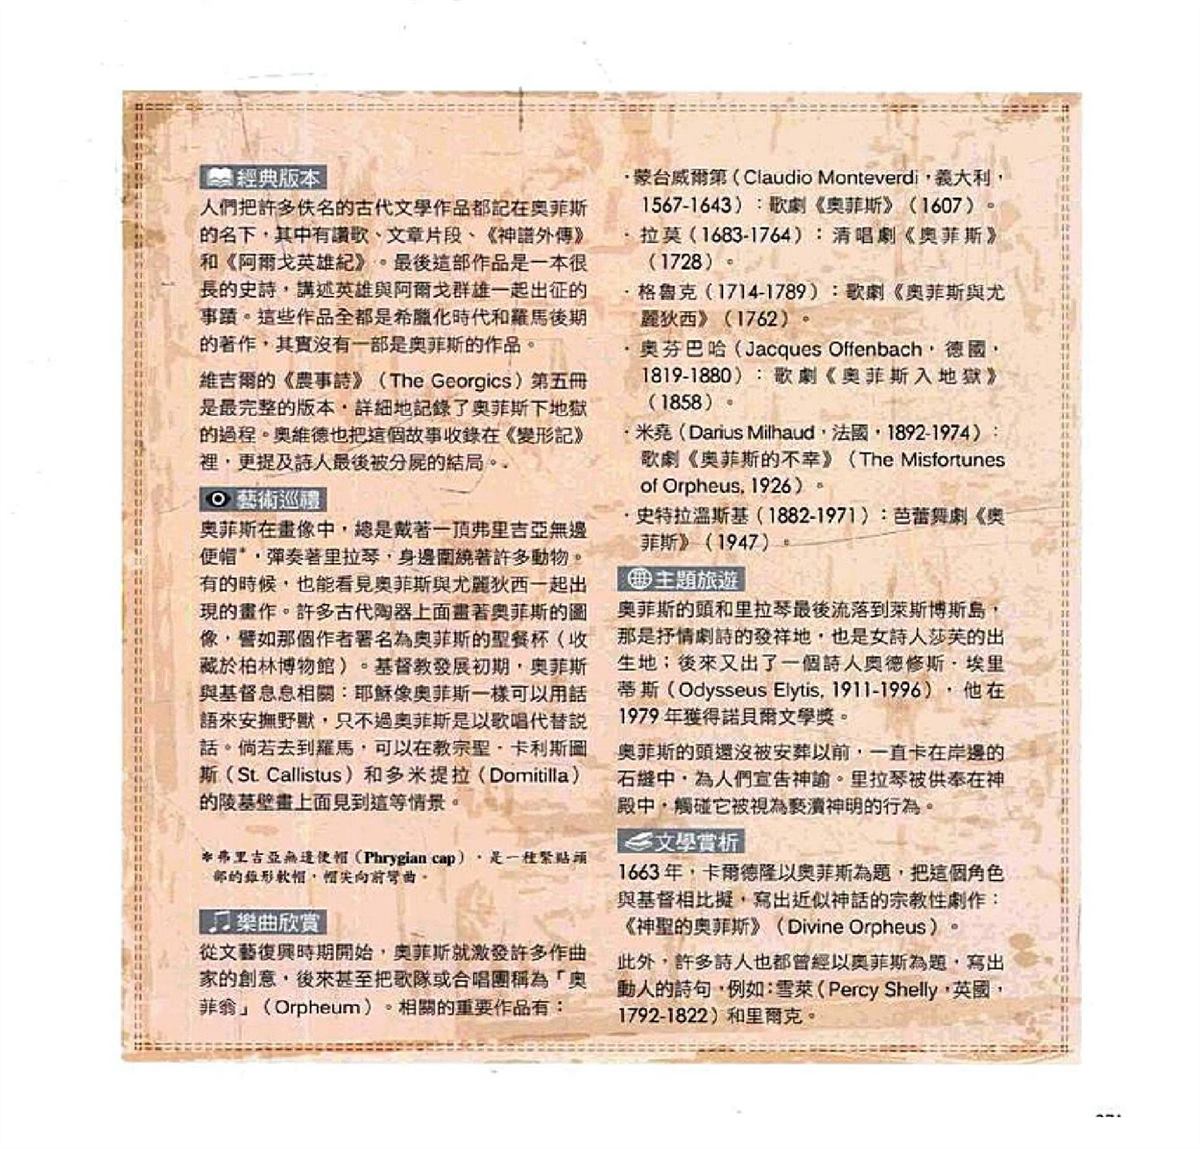 經典版本
人們把許多佚名的古代文學作品都記在奧菲斯
的名下，其中有讚歌、文章片段、《神譜外傳》
和《阿爾戈英雄紀》。最後這部作品是一本很
長的史詩，講述英雄與阿爾戈群雄一起出征的
事蹟。這些作品全都是希臘化時代和羅馬後期
的著作，其實沒有一部是奧菲斯的作品。
維吉爾的《農事詩》（The Georgics）第五冊
是最完整的版本，詳細地記錄了奧菲斯下地獄
的過程。奧維德也把這個故事收錄在《變形記》
裡，更提及詩人最後被分屍的結局。
藝術巡禮
奧菲斯在畫像中，總是戴著一頂弗里吉亞無邊
便帽*，彈奏著里拉琴，身邊圍繞著許多動物。
有的時候，也能看見奧菲斯與尤麗狄西一起出
現的畫作。許多古代陶器上面畫著奧菲斯的圖
像，譬如那個作者署名為奧菲斯的聖餐杯（收
藏於柏林博物館）。基督教發展初期，奧菲斯
與基督息息相關：耶穌像奧菲斯一樣可以用話
語來安撫野獸，只不過奧菲斯是以歌唱代替説
話。倘若去到羅馬，可以在教宗聖．卡利斯圖
斯（St. Callistus）和多米提拉（Domitilla）
的陵墓壁畫上面見到這等情景。
*弗里吉亞無邊便帽（Phrygian cap），是一種緊貼頭
部的錐形軟帽，帽尖向前彎曲。
樂曲欣賞
從文藝復興時期開始，奧菲斯就激發許多作曲
家的創意，後來甚至把歌隊或合唱團稱為「奧
菲翁」（Orpheum）。相關的重要作品有：
·蒙台威爾第（Claudio Monteverdi，義大利，
1567-1643）：歌劇《奧菲斯》（1607）。
·拉莫（1683-1764）：清唱劇《奧菲斯》
（1728）。
·格魯克（1714-1789）：歌劇《奧菲斯與尤
麗狄西》（1762）。
·奧芬巴哈（Jacques Offenbach，德國，
1819-1880）：歌劇《奧菲斯入地獄》
（1858）。
·米堯（Darius Milhaud，法國，1892-1974）：
歌劇《奧菲斯的不幸》（The Misfortunes
of Orpheus, 1926）。
·史特拉溫斯基（1882-1971）：芭蕾舞劇《奧
菲斯》（1947）。
主題旅遊
奧菲斯的頭和里拉琴最後流落到萊斯博斯島，
那是抒情劇詩的發祥地，也是女詩人莎芙的出
生地；後來又出了一個詩人奧德修斯．埃里
蒂斯（Odysseus Elytis, 1911-1996），他在
1979 年獲得諾貝爾文學獎。
奧菲斯的頭還沒被安葬以前，一直卡在岸邊的
石縫中，為人們宣告神諭。里拉琴被供奉在神
殿中，觸碰它被視為褻瀆神明的行為。
文學賞析
1663 年，卡爾德隆以奧菲斯為題，把這個角色
與基督相比擬，寫出近似神話的宗教性劇作：
《神聖的奧菲斯》（Divine Orpheus）。
此外，許多詩人也都曾經以奧菲斯為題，寫出
動人的詩句，例如：雪萊（Percy Shelly，英國，
1792-1822）和里爾克。